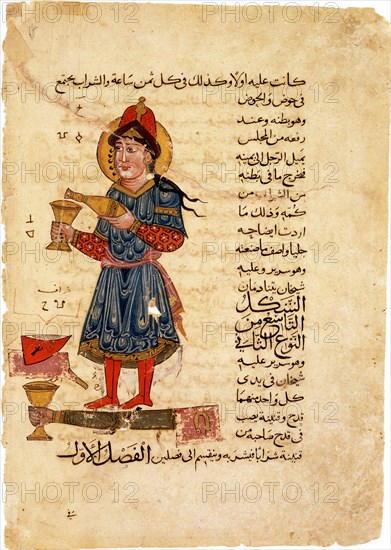 كانت عليه اولا وكذلك في كل ثمن ساعة والشراب يجتمع
في حوض والحوض
وهو بطنه وعند
رفعه من المجلس
يميل الرجل الى يمينه
فيخرج ما في بطنه
من الشراب من
كمه وذلك ما
اردت ايضاحه
جليا واصف ما صنعته
وهو سرير وعليه
شيخان يتنادمان
الشكل
التاسع من
النوع الثاني
وهو سرير عليه
شيخان في يدي
كل واحد منهما
قدح وقنينة يصب
في قدح صاحبه من
قنينة شرابا فيشربه وينقسم الى فصلين الفصل الأول
PHOTO12